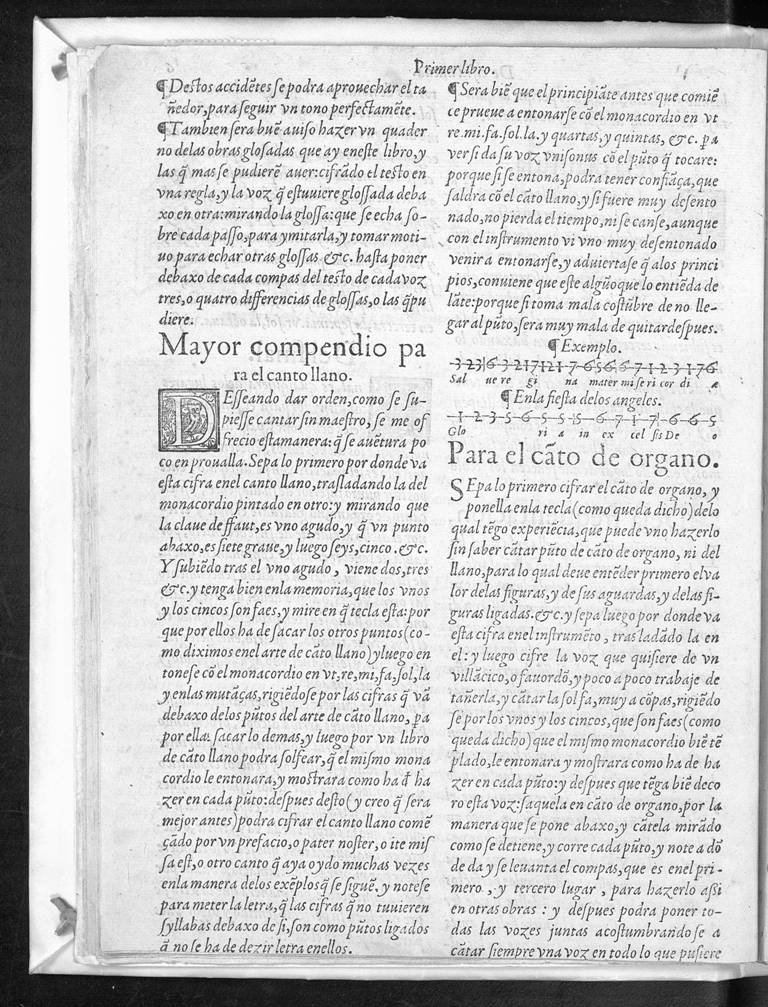 Primer libro.
¶ Destos accidẽtes se podra aprouechar el ta
ñedor, para seguir vn tono perfectamẽte.
¶ Tambien sera buẽ auiso hazer vn quader
no delas obras glosadas que ay eneste libro, y
las q̃ mas se pudierẽ auer: cifrãdo el testo en
vna regla, y la voz q̃ estuuiere glossada deba
xo en otra: mirando la glossa: que se echa so-
bre cada passo, para ymitarla, y tomar moti-
uo para echar otras glossas &c. hasta poner
debaxo de cada compas del testo de cada voz
tres, o quatro differencias de glossas, o las q̃ pu
diere.
Mayor compendio pa
ra el canto llano.
DEsseando dar orden, como se su-
piesse cantar sin maestro, se me of
frecio estamanera: q̃ se auẽtura po
co en proualla. Sepa lo primero por donde va
esta cifra enel canto llano, trasladando la del
monacordio pintado en otro: y mirando que
la claue de ffaut, es vno agudo, y q̃ vn punto
abaxo, es siete graue, y luego seys, cinco. &c.
Y subiẽdo tras el vno agudo, viene dos, tres
&c. y tenga bien enla memoria, que los vnos
y los cincos son faes, y mire en q̃ tecla esta: por
que por ellos ha de sacar los otros puntos (co-
mo diximos enel arte de cãto llano) y luego en
tonese cõ el monacordio en vt, re, mi, fa, sol, la
y enlas mutãças, rigiẽdose por las cifras q̃ vã
debaxo delos pũtos del arte de cãto llano, p̃a
por ellas sacar lo demas, y luego por vn libro
de cãto llano podra solfear, q̃ el mismo mona
cordio le entonara, y mostrara como ha d̃ ha
zer en cada pũto: despues desto (y creo q̃ sera
mejor antes) podra cifrar el canto llano comẽ
çãdo por vn prefacio, o pater noster, o ite mis
sa est, o otro canto q̃ aya oydo muchas vezes
enla manera delos exẽplos q̃ se siguẽ, y notese
para meter la letra, q̃ las cifras q̃ no tuuieren
syllabas debaxo de si, son como pũtos ligados
q̃ no se ha de dezir letra enellos.
¶ Sera biẽ que el principiãte antes que comiẽ
ce prueue a entonarse cõ el monacordio en vt
re. mi. fa. sol. la. y quartas, y quintas, &c. p̃a
ver si da su voz vnisonus cõ el pũto q̃ tocare:
porque si se entona, podra tener confiãça, que
saldra cõ el cãto llano, y si fuere muy desento
nado, no pierda el tiempo, ni se canse, aunque
con el instrumento vi vno muy desentonado
venir a entonarse, y aduiertase q̃ alos princi
pios, conuiene que este algũo que lo entiẽda de
lãte: porque si toma mala costũbre de no lle-
gar al pũto, sera muy mala de quitar despues.
¶ Exemplo.
3 2 3 | 6 3 2 1 7 1 2 1 7 6 5 6 | 6 7 1 2 3 1 7 6
Sal ue re gi na mater mi se ri cor di æ
¶ Enla fiesta delos angeles.
1 2 3 5 6 5 5 5 6 7 1 7 | 6 6 5
Glo ri a in ex cel sis De o
Para el cãto de organo.
SEpa lo primero cifrar el cãto de organo, y
ponella enla tecla (como queda dicho) delo
qual tẽgo experiẽcia, que puede vno hazerlo
sin saber cãtar pũto de cãto de organo, ni del
llano, para lo qual deue entẽder primero el va
lor delas figuras, y de sus aguardas, y delas fi-
guras ligadas. &c. y sepa luego por donde va
esta cifra enel instrumẽto, trasladãdo la en
el: y luego cifre la voz que quisiere de vn
villãcico, o fauordõ, y poco a poco trabaje de
tañerla, y cãtar la solfa, muy a cõpas, rigiẽdo
se por los vnos y los cincos, que son faes (como
queda dicho) que el mismo monacordio biẽ tẽ
plado, le entonara y mostrara como ha de ha
zer en cada pũto: y despues que tẽga biẽ deco
ro esta voz: saquela en cãto de organo, por la
manera que se pone abaxo, y cãtela mirãdo
como se detiene, y corre cada pũto, y note a dõ
de da y se leuanta el compas, que es enel pri-
mero, y tercero lugar, para hazerlo assi
en otras obras: y despues podra poner to-
das las vozes juntas acostumbrando se a
cãtar siempre vna voz en todo lo que pusiere